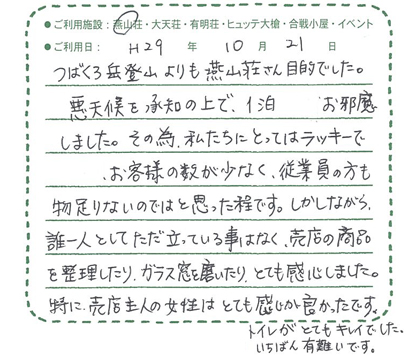 ●ご利用施設：燕山荘・大天荘・有明荘・ヒュッテ大槍・合戦小屋・イベント
●ご利用日： H29 年 10 月 21 日
つばくろ岳登山よりも燕山荘さん目的でした。
悪天候を承知の上で、1泊 お邪魔
しました。その為、私たちにとってはラッキーで
、お客様の数が少なく、従業員の方も
物足りないのではと思った程です。しかしながら、
誰一人としてただ立っている事はなく、売店の商品
を整理したり、ガラス窓を磨いたり、とても感心しました。
特に、売店主人の女性はとても感じが良かったです。
トイレがとてもキレイでした。
いちばん有難いです。